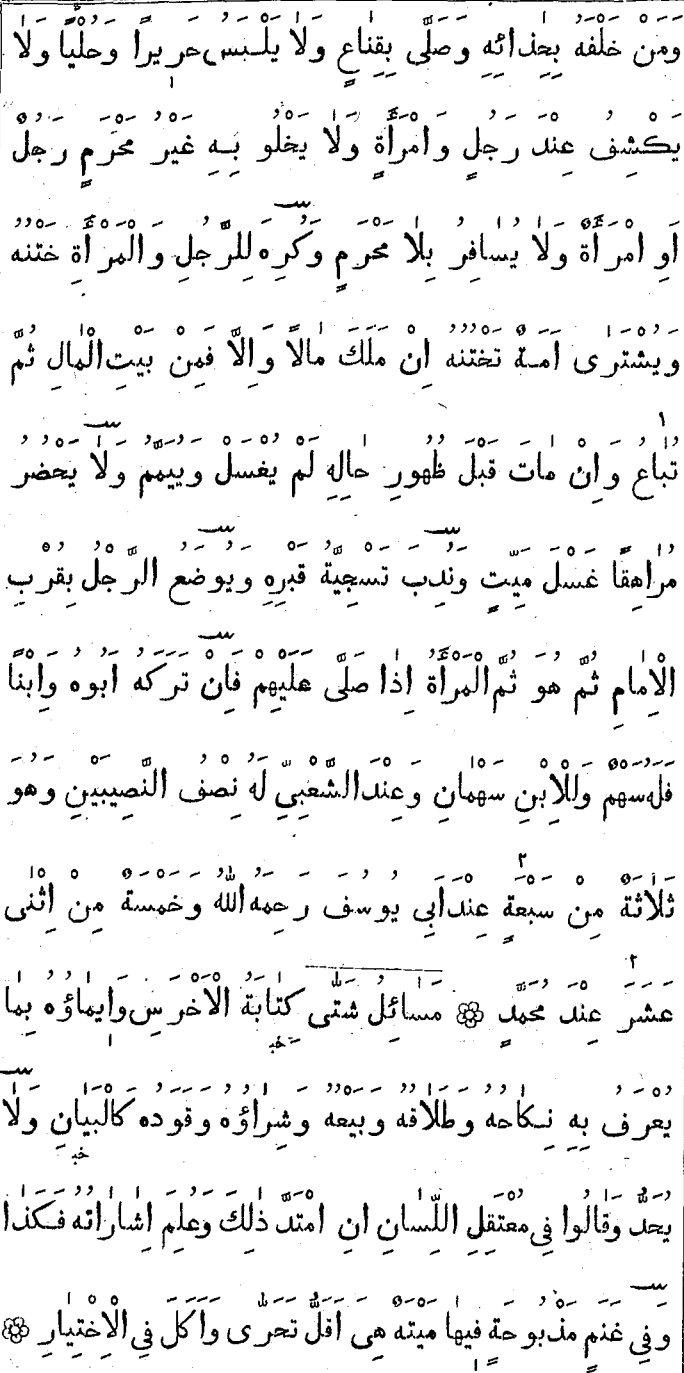 وَمَنْ خَلْفَهُ بِحِذَائِهِ وَصَلَّى بِقِنَاعٍ وَلَا يَلْبَسُ حَرِيرًا وَحُلِيًّا وَلَا
يَكْشِفُ عِنْدَ رَجُلٍ وَامْرَأَةٍ وَلَا يَخْلُو بِهِ غَيْرُ مَحْرَمٍ رَجُلٌ
اَوِ امْرَأَةٌ وَلَا يُسَافِرُ بِلَا مَحْرَمٍ وَكُرِهَ لِلرَّجُلِ وَالْمَرْأَةِ خَتْنُهُ
وَيُشْتَرَى اَمَةٌ تَخْتِنُهُ اِنْ مَلَكَ مَالًا وَاِلَّا فَمِنْ بَيْتِ الْمَالِ ثُمَّ
١
تُبَاعُ وَاِنْ مَاتَ قَبْلَ ظُهُورِ حَالِهِ لَمْ يُغْسَلْ وَيُيَمَّمُ وَلَا يَحْضُرُ
مُرَاهِقًا غَسْلَ مَيِّتٍ وَنُدِبَ تَسْجِيَةُ قَبْرِهِ وَيُوضَعُ الرَّجُلُ بِقُرْبِ
الْاِمَامِ ثُمَّ هُوَ ثُمَّ الْمَرْأَةُ اِذَا صَلَّى عَلَيْهِمْ فَاِنْ تَرَكَهُ اَبُوهُ وَابْنًا
فَلَهُ سَهْمٌ وَلِلْاِبْنِ سَهْمَانِ وَعِنْدَ الشَّعْبِيِّ لَهُ نِصْفُ النَّصِيبَيْنِ وَهُوَ
٢
ثَلَاثَةٌ مِنْ سَبْعَةٍ عِنْدَ اَبِي يُوسُفَ رَحِمَهُ اللّٰهُ وَخَمْسَةٌ مِنْ اِثْنَى
٢
عَشَرَ عِنْدَ مُحَمَّدٍ ۞ مَسَائِلُ شَتَّى كِتَابَةُ الْاَخْرَسِ وَاِيمَاؤُهُ بِمَا
يُعْرَفُ بِهِ نِكَاحُهُ وَطَلَاقُهُ وَبَيْعُهُ وَشِرَاؤُهُ وَقَوَدُهُ كَالْبَيَانِ وَلَا
يُحَدُّ وَقَالُوا فِي مُعْتَقَلِ اللِّسَانِ اِنِ امْتَدَّ ذٰلِكَ وَعُلِمَ اِشَارَاتُهُ فَكَذَا
وَفِي غَنَمٍ مَذْبُوحَةٍ فِيهَا مَيْتَةٌ هِيَ اَقَلُّ تَحَرَّى وَاَكَلَ فِي الْاِخْتِيَارِ ۞